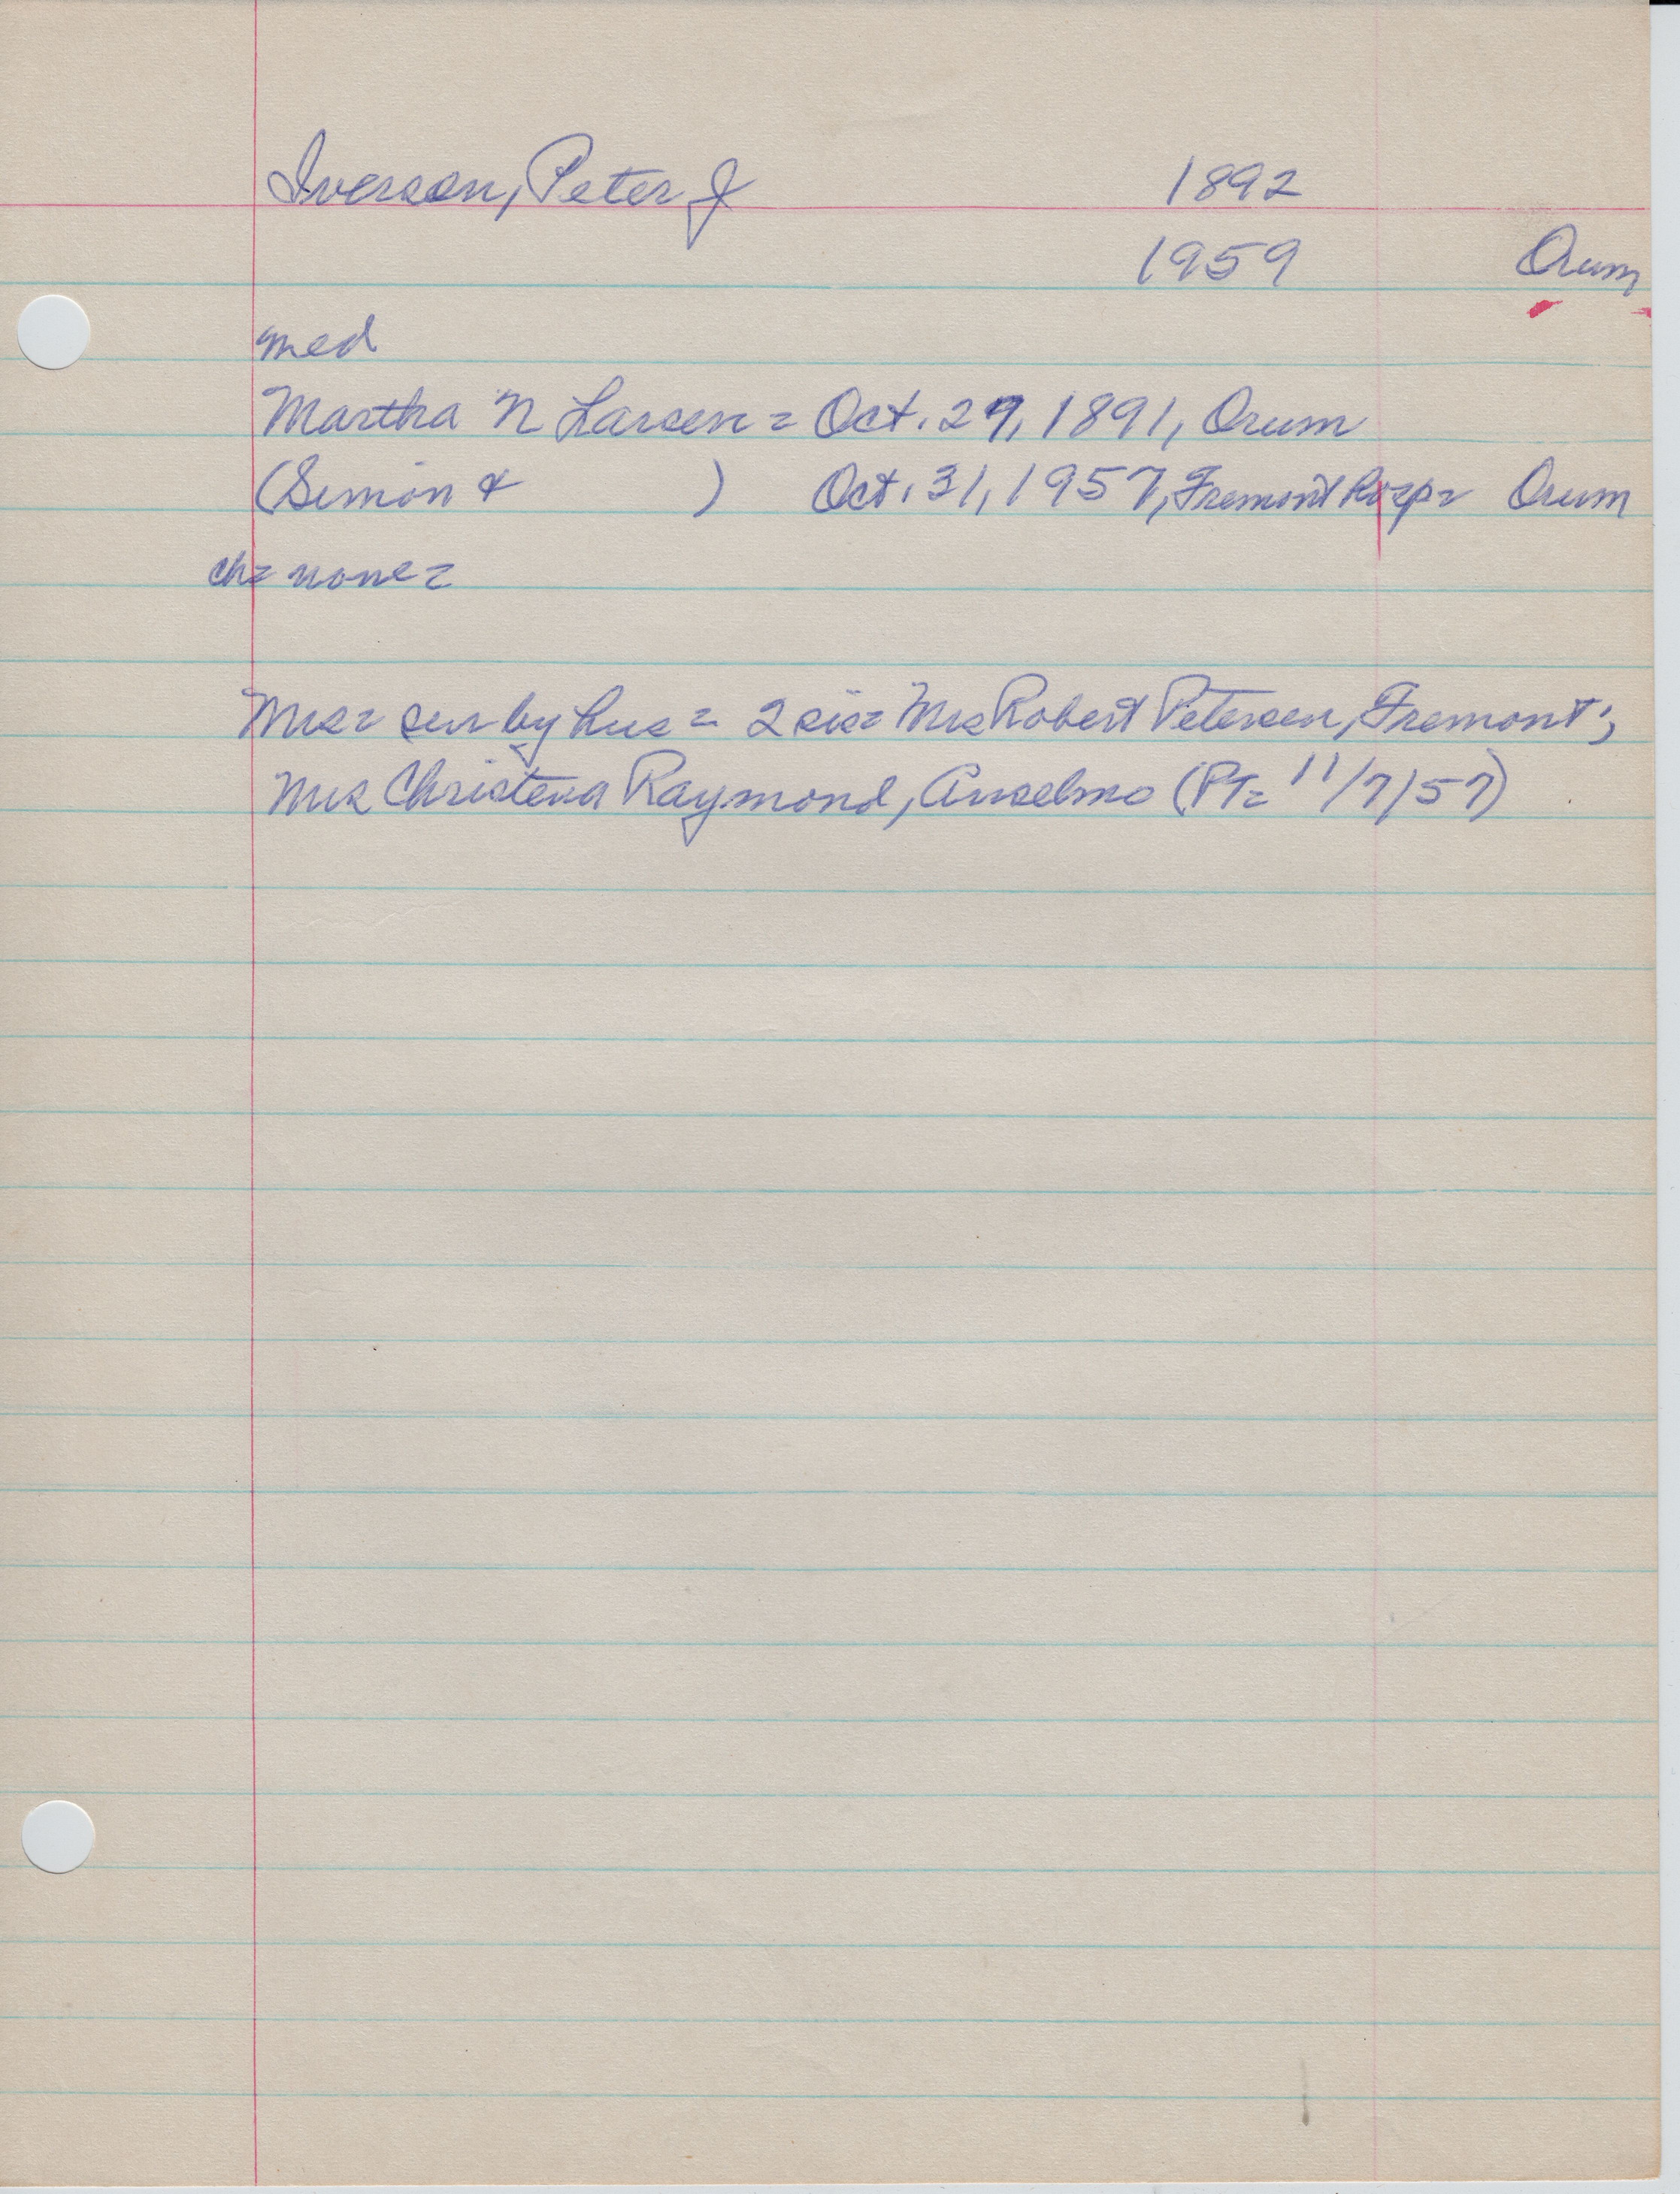 Iversen, Peter J 1892
1959 Orum
med
Martha N Larsen = Oct. 29, 1891, Orum
(Simon & ) Oct. 31, 1957, Fremont Hosp= Orum
ch= none=
Mrs= sur by hus= 2 sis= Mrs Robert Petersen, Fremont;
Mrs Christena Raymond, Anselmo (PT= 11/7/57)